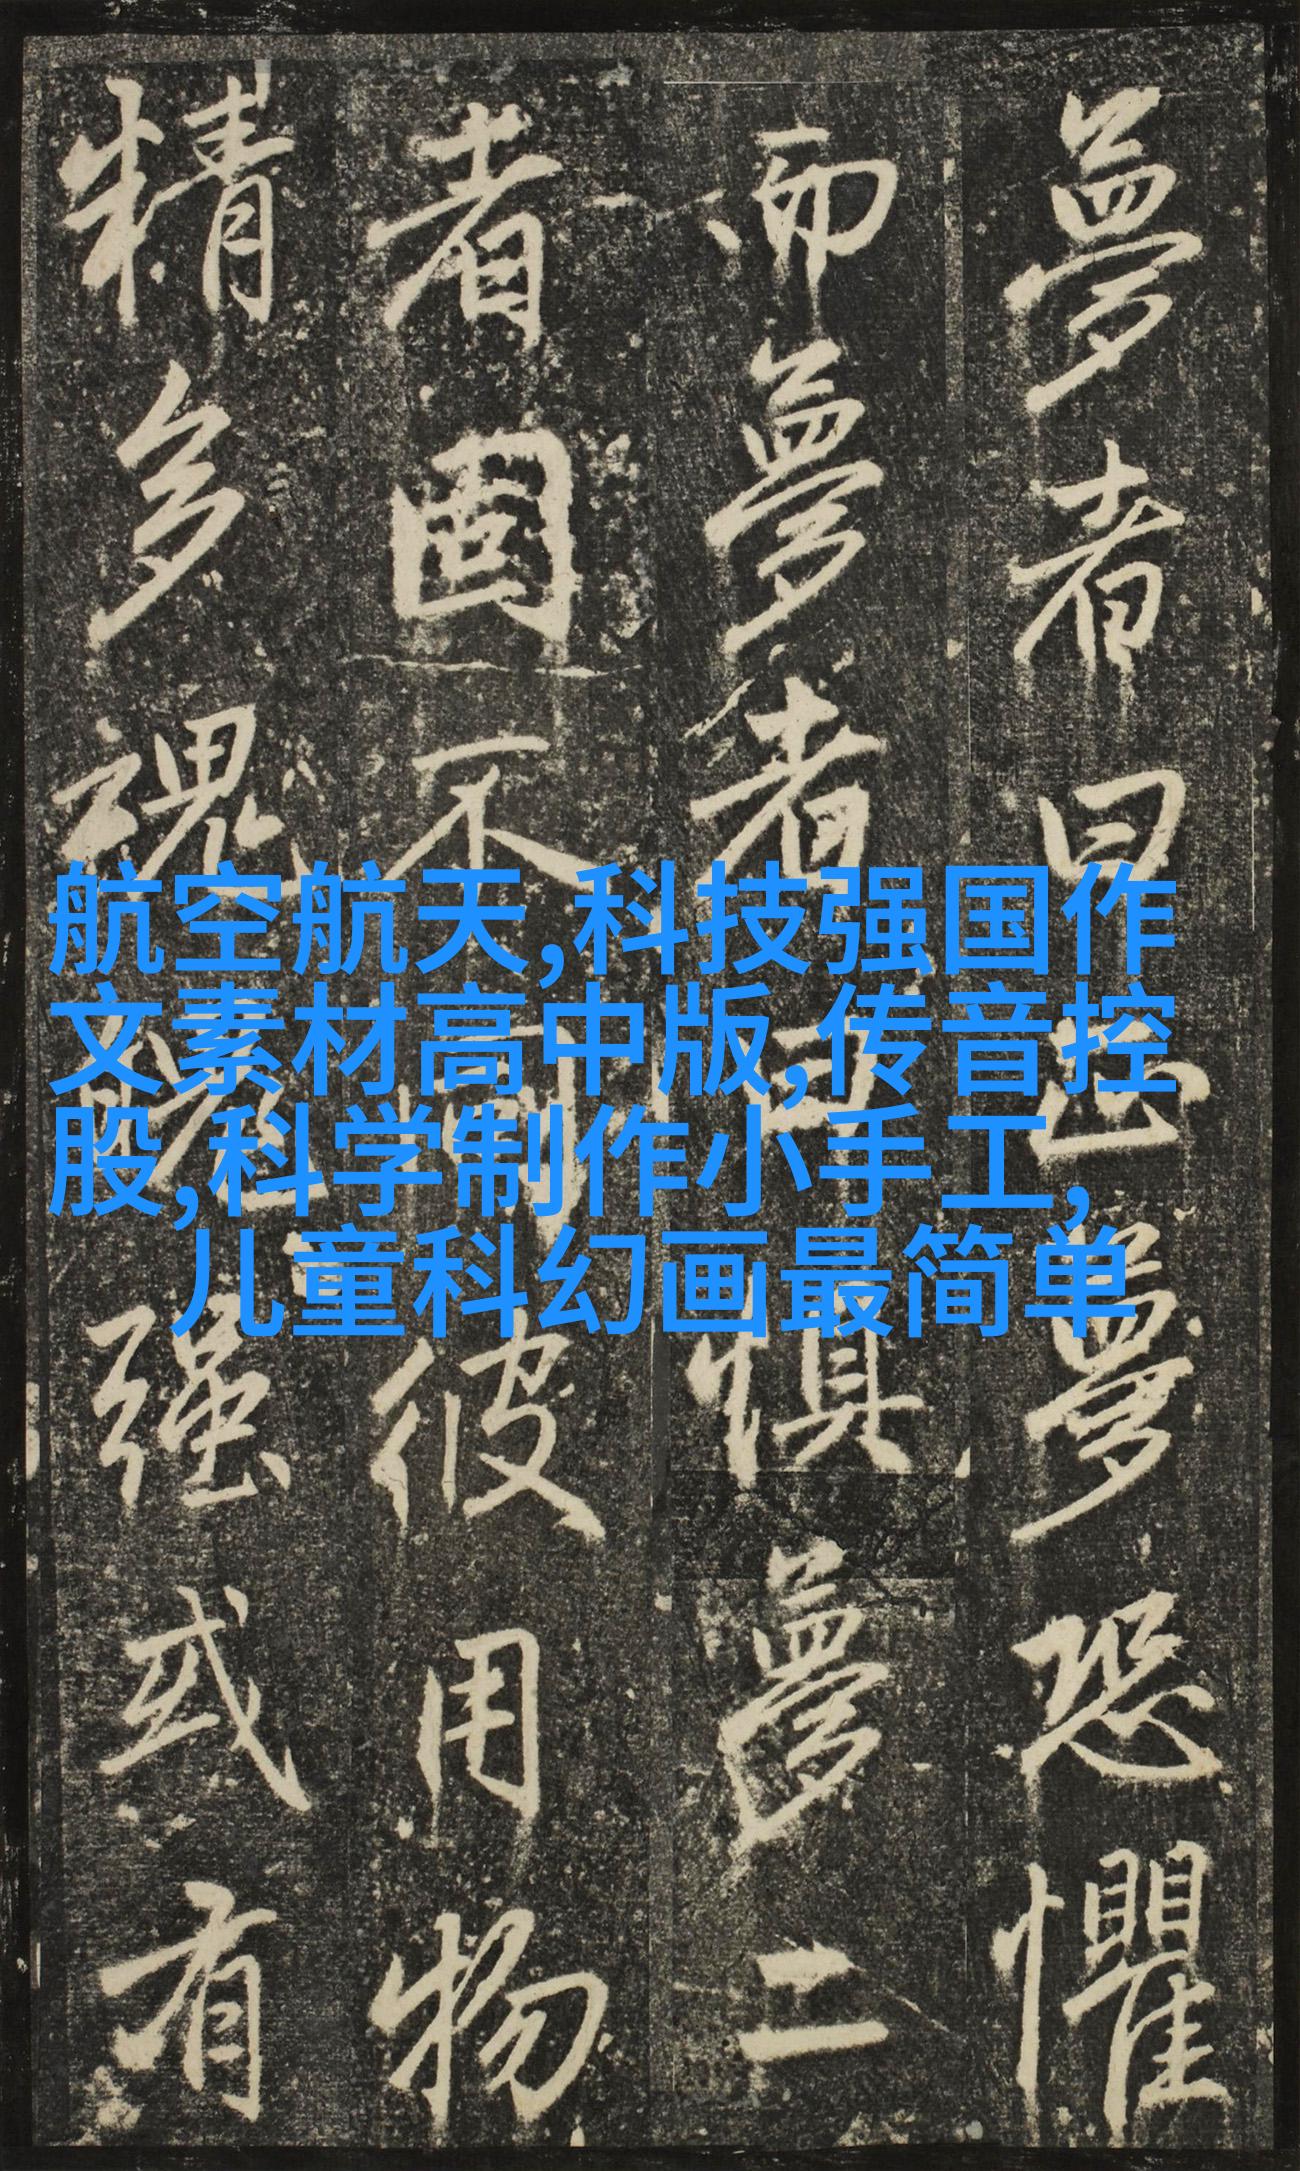 夢者曰正夢恐懼
而夢者曰惧夢二
者固不同彼用物
精多魂魄强或有
航空航天,科技强国作
文素材高中版,传音控
股,科学制作小手工,
儿童科幻画最简单